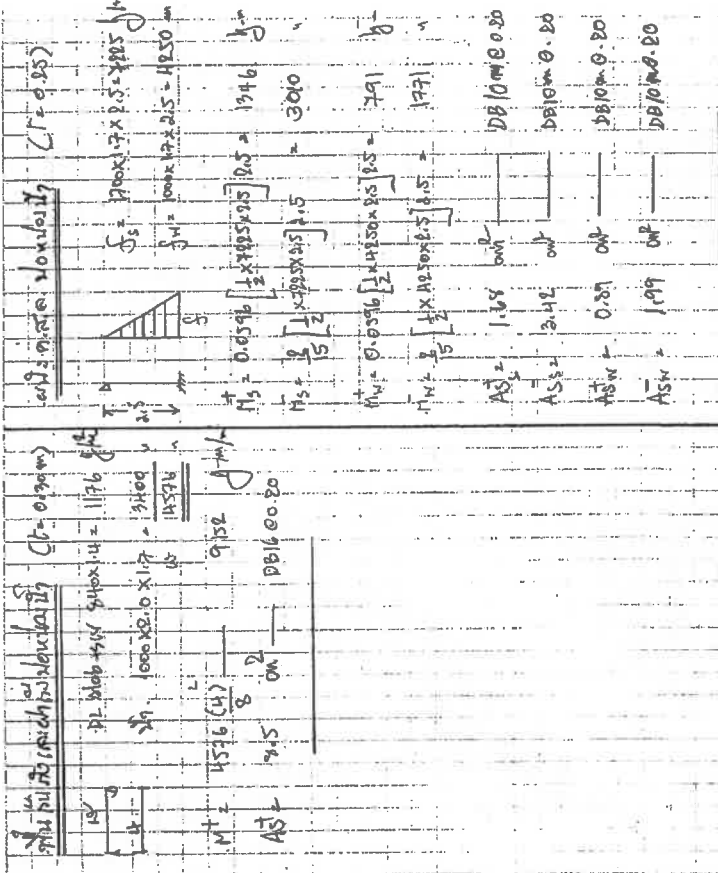 (t=0.30m)
DL slab+SW 840x1.4 = 1176
น้ำ 1000x2.0x1.7 = 3400 "
W 4576 "
M+ = 4576 (4)²/8 = 9152
As+ = 8.5 cm² — DB16@0.20
(t=0.25)
fs = 1700x1.7x2.5 = 7225
fw = 1000x1.7x2.5 = 4250
2.5
f
Ms+ = 0.0596 [1/2 x7225x2.5] 2.5 = 1346
Ms- = 2/15 [1/2 x7225x2.5] 2.5 = 3010 "
Mw+ = 0.0596 [1/2 x4250x2.5] 2.5 = 791
Mw- = 2/15 [1/2 x4250x2.5] 2.5 = 1771 "
As+s = 1.68 cm² — DB10m@0.20
As-s = 3.42 cm² — DB10m@.20
As+w = 0.89 cm² — DB10m@.20
As-w = 1.99 cm² — DB10m@.20